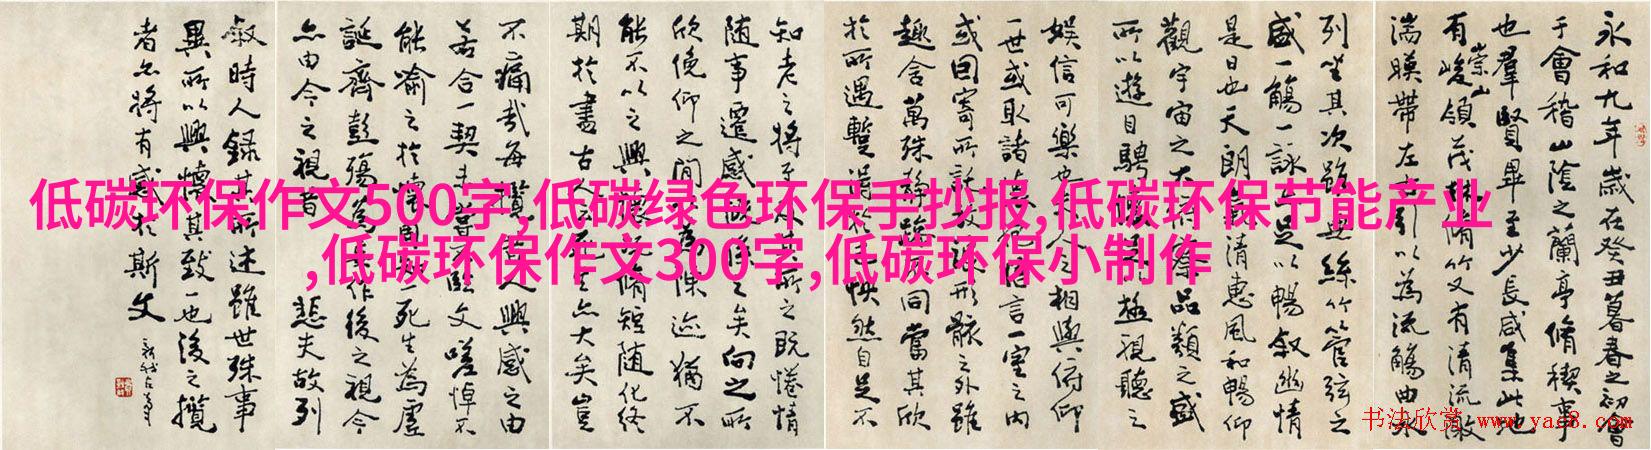 永和九年歲在癸丑暮春之初會
于會稽山陰之蘭亭脩稧事
也羣賢畢至少長咸集此地
有崇山峻領茂林脩竹又有清流激
湍暎帶左右引以為流觴曲水
列坐其次雖無絲竹管弦之
盛一觴一詠亦足以暢敘幽情
是日也天朗氣清惠風和暢仰
觀宇宙之大俯察品類之盛
所以遊目騁懷足以極視聽之
娛信可樂也夫人之相與俯仰
一世或取諸懷抱悟言一室之內
或因寄所託放浪形骸之外雖
趣舍萬殊靜躁不同當其欣
於所遇暫得於己怏然自足不
知老之將至及其所之既惓情
随事遷感慨係之矣向之所
欣俛仰之間以為陳迹猶不
能不以之興懷況脩短随化終
期於盡古人云死生亦大矣豈
不痛哉每攬昔人興感之由
若合一契未嘗不臨文嗟悼不
能喻之於懷固知一死生為虛
誕齊彭殤為妄作後之視今
亦由今之視昔悲夫故列
敘時人録其所述雖世殊事
異所以興懷其致一也後之攬
者亦將有感於斯文
低碳环保作文500字,低碳绿色环保手抄报,低碳环保节能产业
,低碳环保作文300字,低碳环保小制作
书法欣赏 www.yac8.com